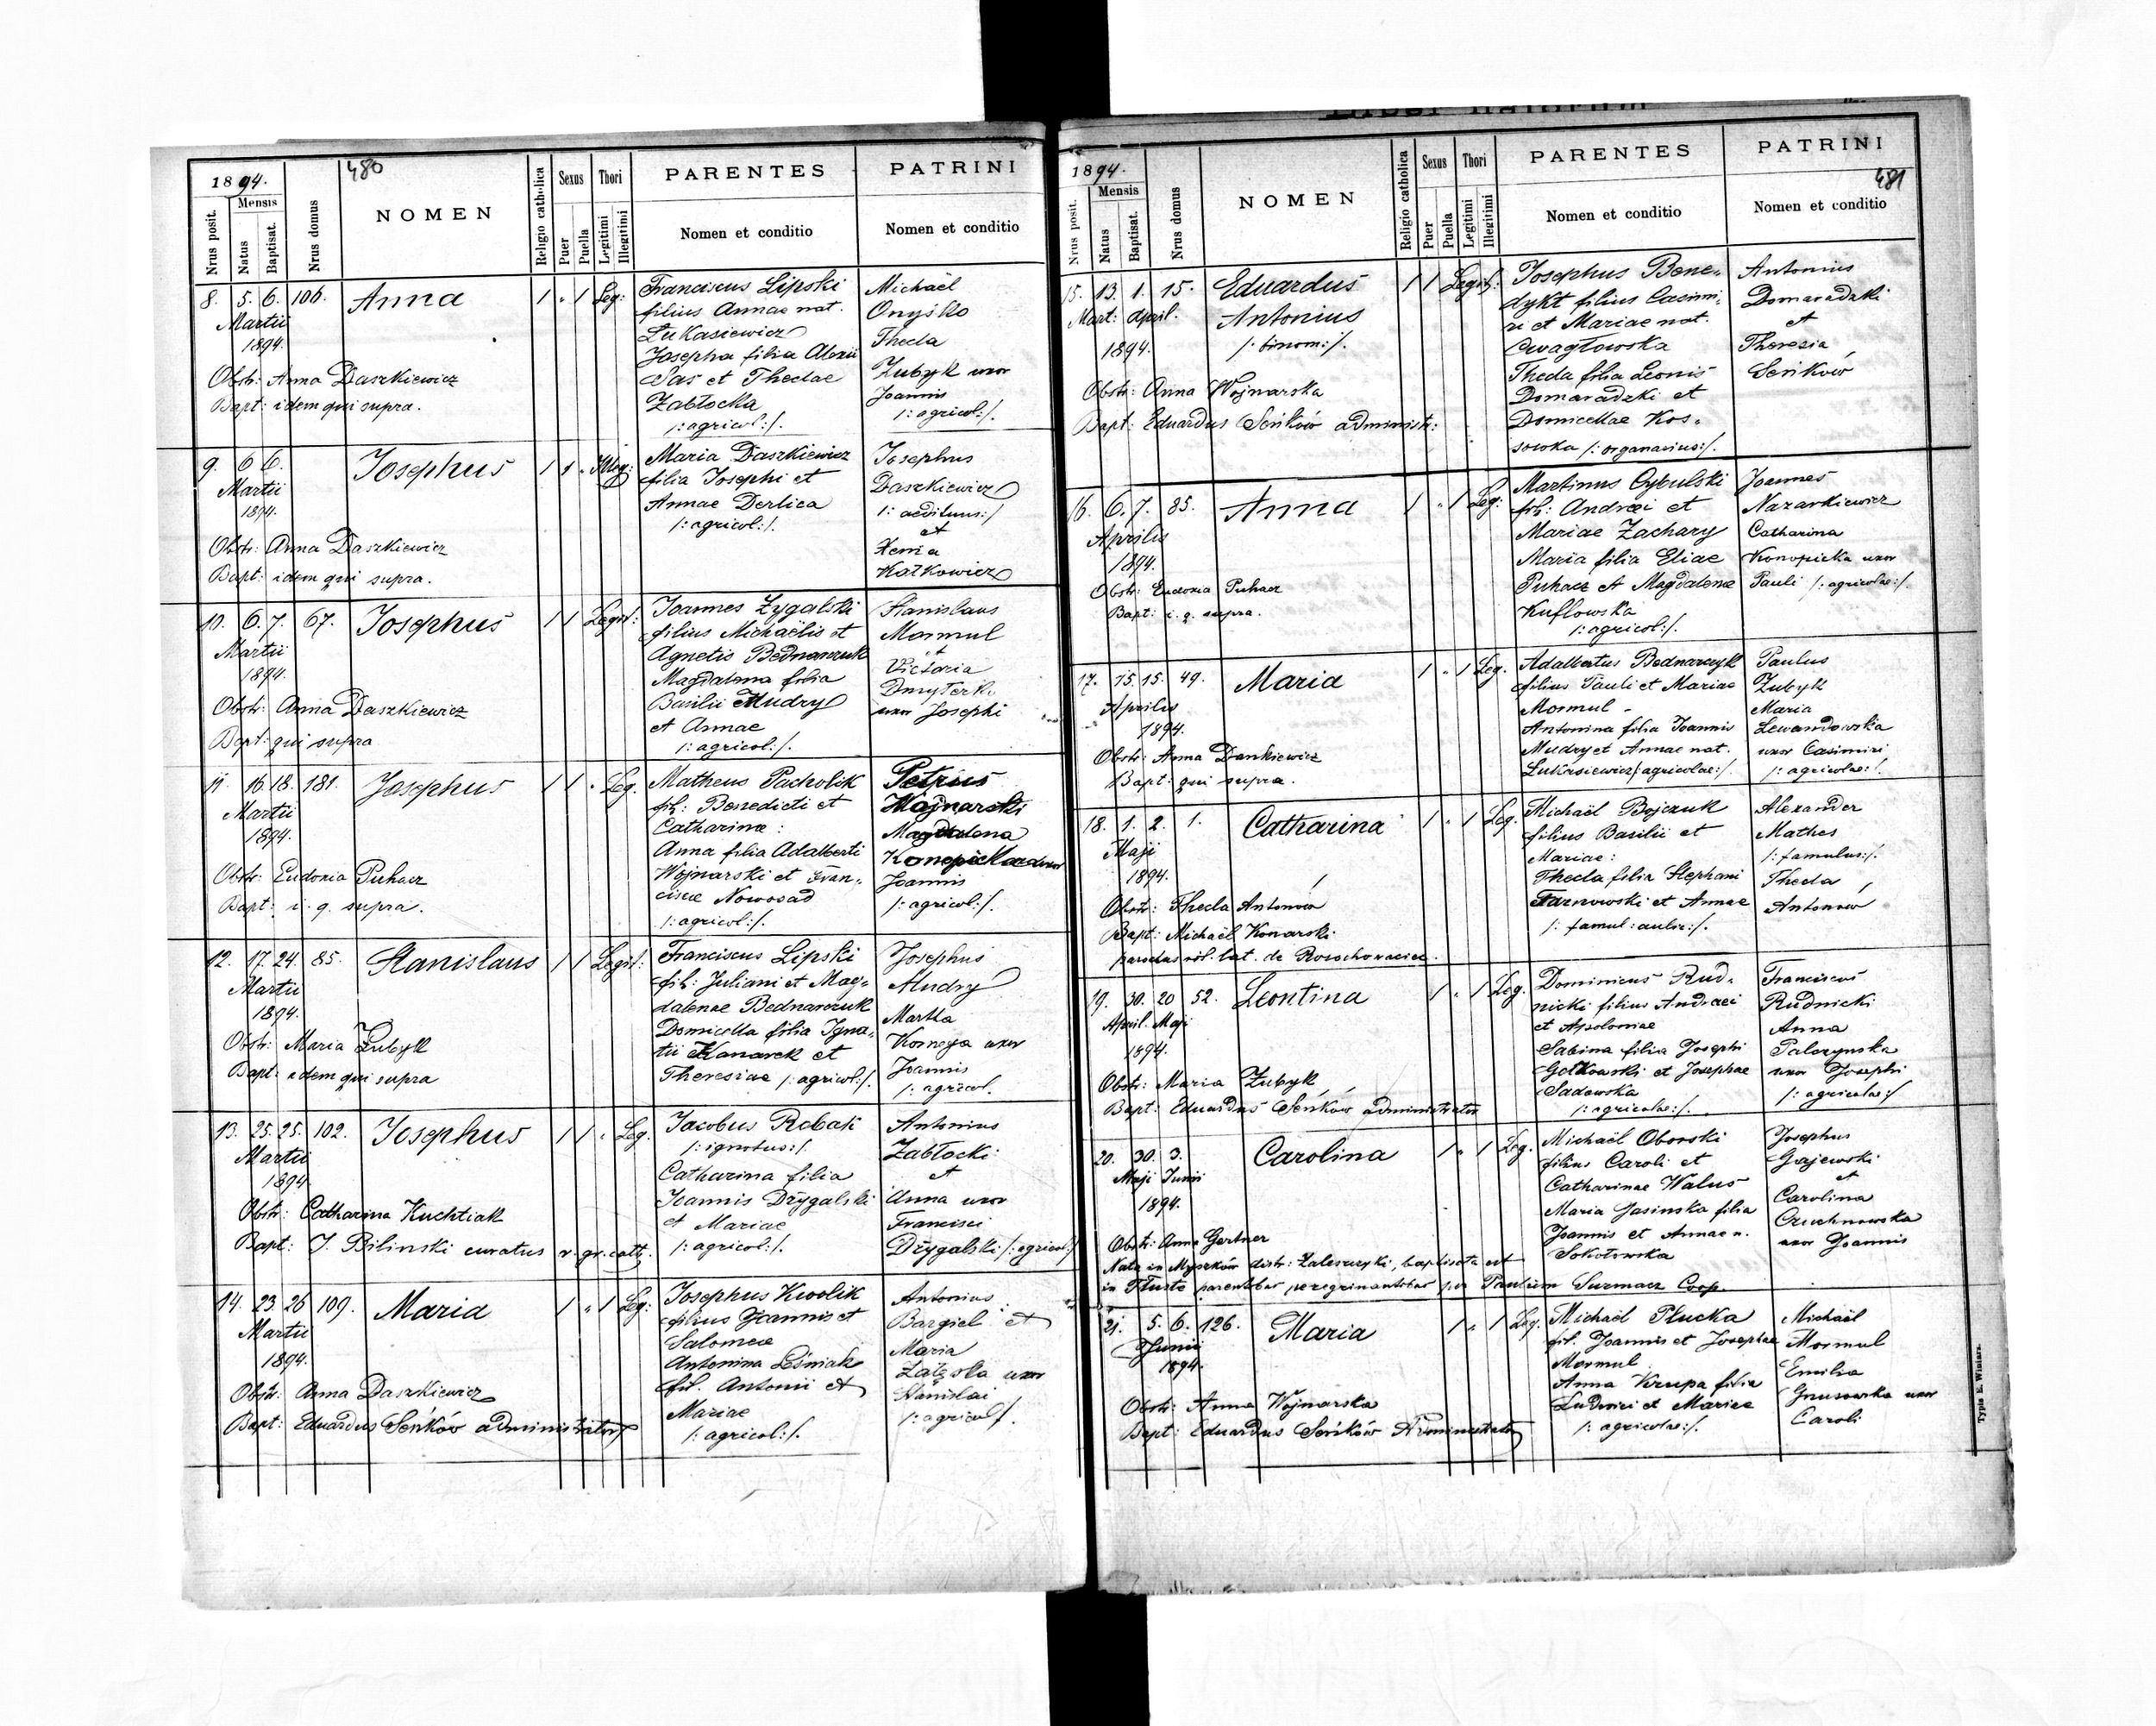 480
1894.
Nrus posit.
Mensis
Natus
Baptisat.
Nrus domus
NOMEN
Religio catholica
Sexus
Puer
Puella
Thori
Legitimi
Illegitimi
PARENTES
Nomen et conditio
PATRINI
Nomen et conditio
8. 5. 6. 106. Anna 1 " 1 Leg:
Martii
1894.
Obstr: Anna Daszkiewicz
Bapt: idem qui supra.
Franciscus Lipski
filius Annae nat.
Łukasiewicz
Josepha filia Alexii
Sas et Theclae
Zabłocka
/: agricol:/.
Michaël
Onyśko
Thecla
Zubyk uxor
Joannis
/: agricol:/.
9. 6 6. Josephus 1 1 " Illeg:
Martii
1894.
Obstr: Anna Daszkiewicz
Bapt: idem qui supra.
Maria Daszkiewicz
filia Josephi et
Annae Derlica
/: agricol:/.
Josephus
Daszkiewicz
/: aedituus:/
et
Xenia
Kotkowicz
10. 6. 7. 67. Josephus 1 1 Legit:
Martii
1894.
Obstr: Anna Daszkiewicz
Bapt: qui supra
Joannes Zygalski
filius Michaëlis et
Agnetis Bednarczuk
Magdalena filia
Basilii Mudry
et Annae
/: agricol:/.
Stanislaus
Mormul
et
Victoria
Dmyterko
uxor Josephi
11. 16. 18. 181. Josephus 1 1 " Leg.
Martii
1894.
Obstr: Eudoxia Puhacz
Bapt: i. q. supra.
Matheus Pacholik
fil: Benedicti et
Catharinae:
Anna filia Adalberti
Wojnarski et Fran-
ciscae Nowosad
/: agricol:/.
Petrus
Wojnarski
Magdalena
Konopicka uxor
Joannis
/: agricol:/.
12. 17. 24. 85. Stanislaus 1 1 Legit:
Martii
1894.
Obstr: Maria Zubyk
Bapt: idem qui supra
Franciscus Lipski
fil: Juliani et Mag-
dalenae Bednarczuk
Domicella filia Igna-
tii Kanarek et
Theresiae /: agricol:/.
Josephus
Mudry
Martha
Korneya uxor
Joannis
/: agricol.
13. 25. 25. 102. Josephus 1 1 " Leg.
Martii
1894
Obstr: Catharina Kuchtiak
Bapt: J. Bilinski curatus r. gr. cath.
Jacobus Robak
/: ignotus:/.
Catharina filia
Joannis Drzygalski
et Mariae
/: agricol:/.
Antonius
Zabłocki
et
Anna uxor
Francisci
Drzygalski /: agricol:/
14. 23. 26 109. Maria 1 " 1 Leg:
Martii
1894.
Obstr: Anna Daszkiewicz
Bapt: Eduardus Seńków administrator
Josephus Kwolik
filius Joannis et
Salomeae
Antonina Leśniak
fil. Antonii et
Mariae
/: agricol:/.
Antonius
Bargiel et
Maria
uxor
Stanislai
/: agricol/.
1894.
481
Nrus posit.
Mensis
Natus
Baptisat.
Nrus domus
NOMEN
Religio catholica
Sexus
Puer
Puella
Thori
Legitimi
Illegitimi
PARENTES
Nomen et conditio
PATRINI
Nomen et conditio
15. 13. 1. 15. Eduardus 1 1 Legit:
Mart: April. Antonius
1894. /: binom:/.
Obstr: Anna Wojnarska
Bapt: Eduardus Seńków administr:
Josephus Bene-
dykt filius Casimi-
ri et Mariae nat.
Cwagłowska
Thecla filia Leonis
Domaradzki et
Domicellae Kos-
sowka /: organarius:/.
Antonius
Domaradzki
et
Theresia
Seńków
16. 6. 7. 85. Anna 1 " 1 Leg:
Aprilis
1894.
Obstr: Eudoxia Puhacz
Bapt: i. q. supra.
Martinus Cybulski
fil: Andrei et
Mariae Zachary
Maria filia Eliae
Puhacz et Magdalenae
Kuflowska
/: agricol:/.
Joannes
Nazarkiewicz
Catharina
Konopicka uxor
Pauli /: agricolae:/.
17. 15. 15. 49. Maria 1 " 1 Leg.
Aprilis
1894.
Obstr: Anna Dankiewicz
Bapt: qui supra.
Adalbertus Bednarczyk
filius Pauli et Mariae
Mormul -
Antonina filia Joannis
Mudry et Annae nat.
Łukasiewicz /: agricolae:/.
Paulus
Zubyk
Maria
Lewandowska
uxor Casimiri
/: agricolae:/.
18. 1. 2. 1. Catharina 1 " 1 Leg.
Maji
1894.
Obstr: Thecla Antonów
Bapt: Michaël Konarski
parochus rit. lat. de Rosochowaciec.
Michaël Bojczuk
filius Basilii et
Mariae:
Thecla filia Stephani
Tarnowski et Annae
/: famul: aulic:/.
Alexander
Mathes
/: famulus:/.
Thecla
Antonów
19. 30. 20 52. Leontina 1 " 1 Leg.
April. Maji
1894.
Obstr: Maria Zubyk
Bapt: Eduardus Seńków administrator
Dominicus Rud-
nicki filius Andreei
et Apoloniae
Sabina filia Josephi
Gotkowski et Josephae
Sadowska
/: agricolae:/.
Franciscus
Rudnicki
Anna
Palczynska
uxor Josephi
/: agricolae:/
20. 30. 3. Carolina 1 " 1 Leg.
Maji Junii
1894.
Obstr: Anna Gertner
Nata in Myszków distr: Zaleszczyki, baptisata est
in Tłuste parentibus peregrinantibus per Paulum Surmacz Coop.
Michaël Oborski
filius Caroli et
Catharinae Walus
Maria Jasinska filia
Joannis et Annae n.
Sokołowska
Josephus
Gajewski
et
Carolina
Czuchnowska
uxor Joannis
21. 5. 6. 126. Maria 1 " 1 Leg.
Junii
1894.
Obstr: Anna Wojnarska
Bapt: Eduardus Seńków Administrator
Michaël Plucka
fil. Joannis et Josephae
Mormul
Anna Krupa filia
Ludovici et Mariae
/: agricolae:/.
Michaël
Mormul
Emilia
uxor
Caroli
Typis E. Winiarz.